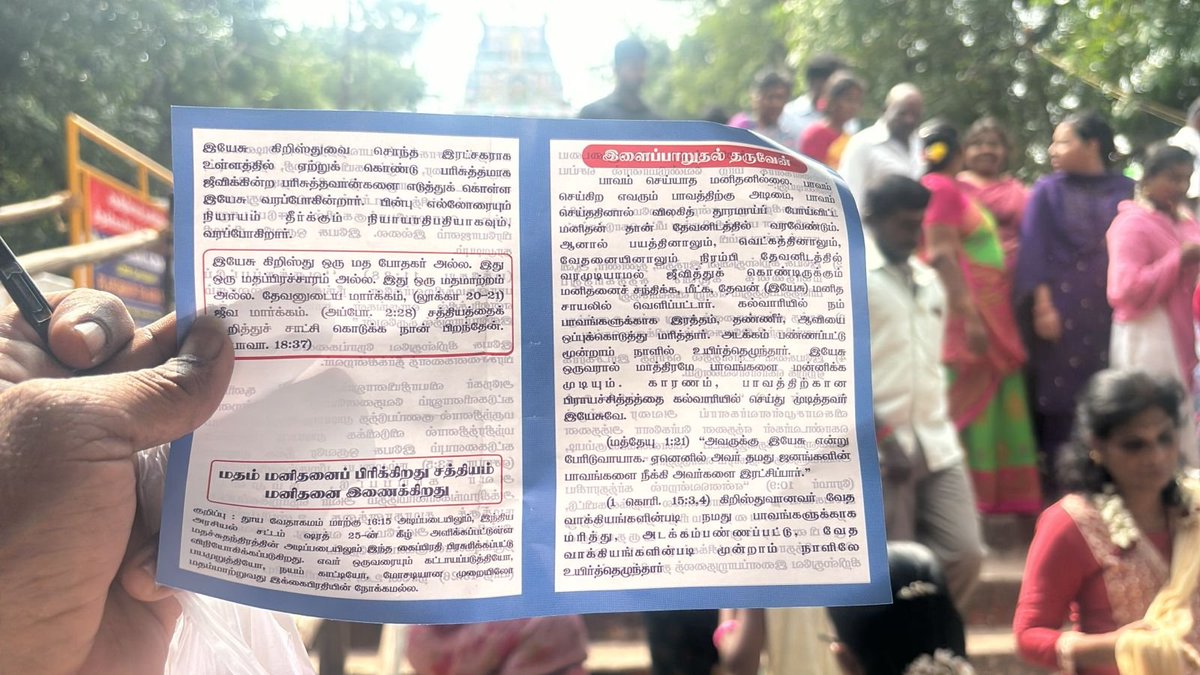 இயேசு கிறிஸ்துவை சொந்த இரட்சகராக
உள்ளத்தில் ஏற்றுக் கொண்டு பரிசுத்தமாக
ஜீவிக்கின்ற பரிசுத்தவான்களை எடுத்துக் கொள்ள
இயேசு வரப்போகின்றார். பின்பு எல்லோரையும்
நியாயம் தீர்க்கும் நியாயாதிபதியாகவும்,
வரப்போகிறார்.
இயேசு கிறிஸ்து ஒரு மத போதகர் அல்ல. இது
ஒரு மதப்பிரச்சாரம் அல்ல. இது ஒரு மதமாற்றம்
அல்ல. தேவனுடைய மார்க்கம், (லூக்கா 20-21)
ஜீவ மார்க்கம். (அப்போ. 2:28) சத்தியத்தைக்
றித்துச் சாட்சி கொடுக்க நான் பிறந்தேன்.
யோவா. 18:37)
மதம் மனிதனைப் பிரிக்கிறது சத்தியம்
மனிதனை இணைக்கிறது
குறிப்பு : தூய வேதாகமம் மாற்கு 16:15 அடிப்படையிலும், இந்திய
அரசியல் சட்டம் ஷரத் 25-ன் கீழ் அளிக்கப்பட்டுள்ள
மதச்சுதந்திரத்தின் அடிப்படையிலும் இந்த கைப்பிரதி பிரசுரிக்கப்பட்டு
விநியோகிக்கப்படுகிறது. எவர் ஒருவரையும் கட்டாயப்படுத்தியோ,
பயமுறுத்தியோ, நயம் காட்டியோ, மோசடியான முறையிலோ
மதம்மாற்றுவது இக்கைபிரதியின் நோக்கமல்ல.
இளைப்பாறுதல் தருவேன்
பாவம் செய்யாத மனிதனில்லை, பாவம்
செய்கிற எவரும் பாவத்திற்கு அடிமை, பாவம்
செய்ததினால் விலகித் தூரமாய்ப் போய்விட்ட
மனிதன் தான் தேவனிடத்தில் வரவேண்டும்.
ஆனால் பயத்தினாலும், வெட்கத்தினாலும்,
வேதனையினாலும் நிரம்பி தேவனிடத்தில்
வரமுடியாமல் ஜீவித்துக் கொண்டிருக்கும்
மனிதனைச் சந்திக்க, மீட்க, தேவன் (இயேசு) மனித
சாயலில் வெளிப்பட்டார். கல்வாரியில் நம்
பாவங்களுக்காக இரத்தம், தண்ணீர், ஆவியை
ஒப்புக்கொடுத்து மரித்தார். அடக்கம் பண்ணப்பட்டு
மூன்றாம் நாளில் உயிர்த்தெழுந்தார். இயேசு
ஒருவரால் மாத்திரமே பாவங்களை மன்னிக்க
முடியும். காரணம், பாவத்திற்கான
பிராயச்சித்தத்தை கல்வாரியில் செய்து முடித்தவர்
இயேசுவே.
(மத்தேயு 1:21) “அவருக்கு இயேசு என்று
பேரிடுவாயாக. ஏனெனில் அவர் தமது ஜனங்களின்
பாவங்களை நீக்கி அவர்களை இரட்சிப்பார்.”
(1 கொரி. 15:3,4) கிறிஸ்துவானவர் வேத
வாக்கியங்களின்படி நமது பாவங்களுக்காக
மரித்து, அடக்கம்பண்ணப்பட்டு, வேத
வாக்கியங்களின்படி மூன்றாம் நாளிலே
உயிர்த்தெழுந்தார்